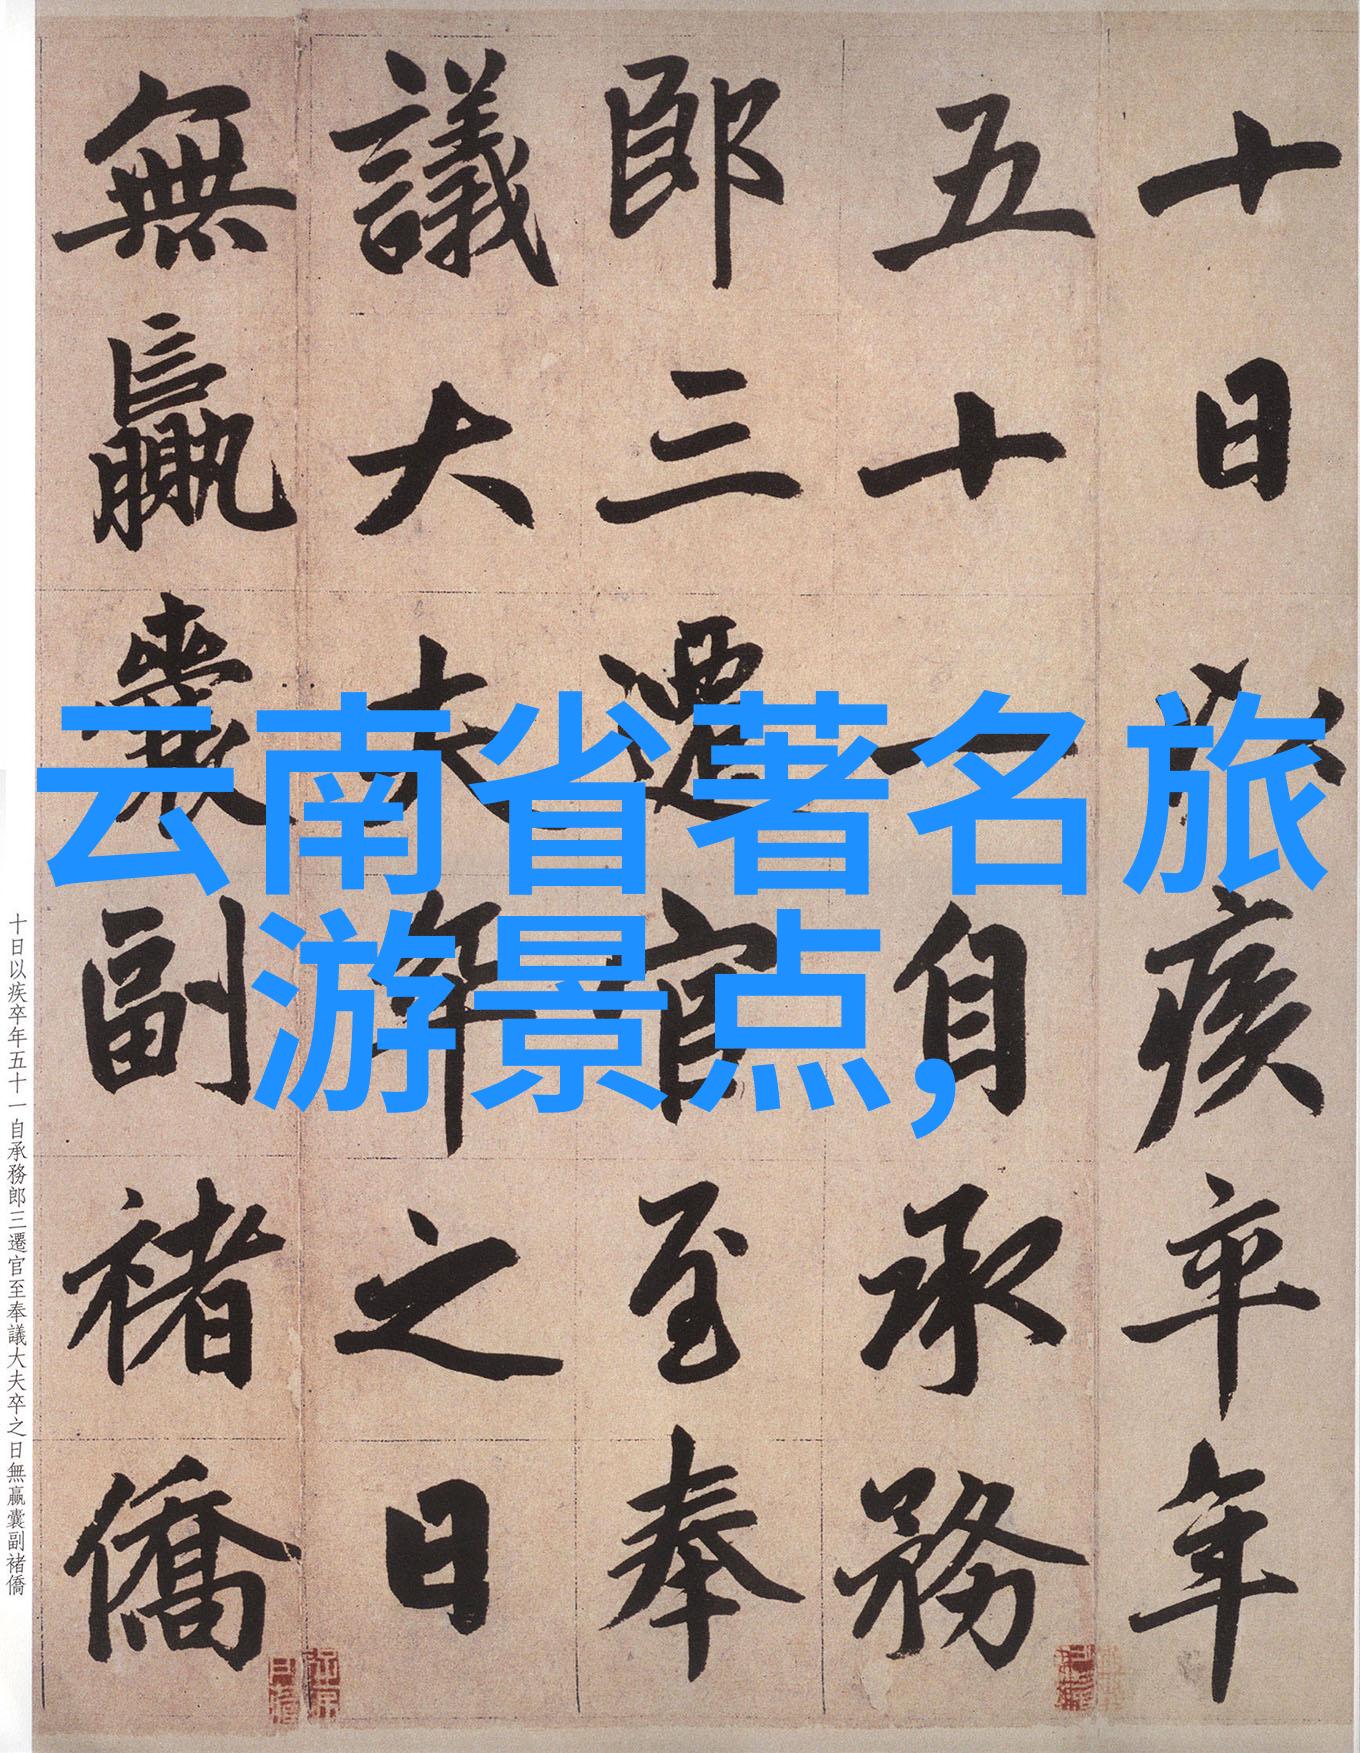 十日以疾卒年
五十一自承務
郎三遷官至奉
議大夫卒之日
無贏囊副褚僑
云南省著名旅
游景点,
十日以疾卒年五十一自承務郎三遷官至奉議大夫卒之日無贏囊副褚僑